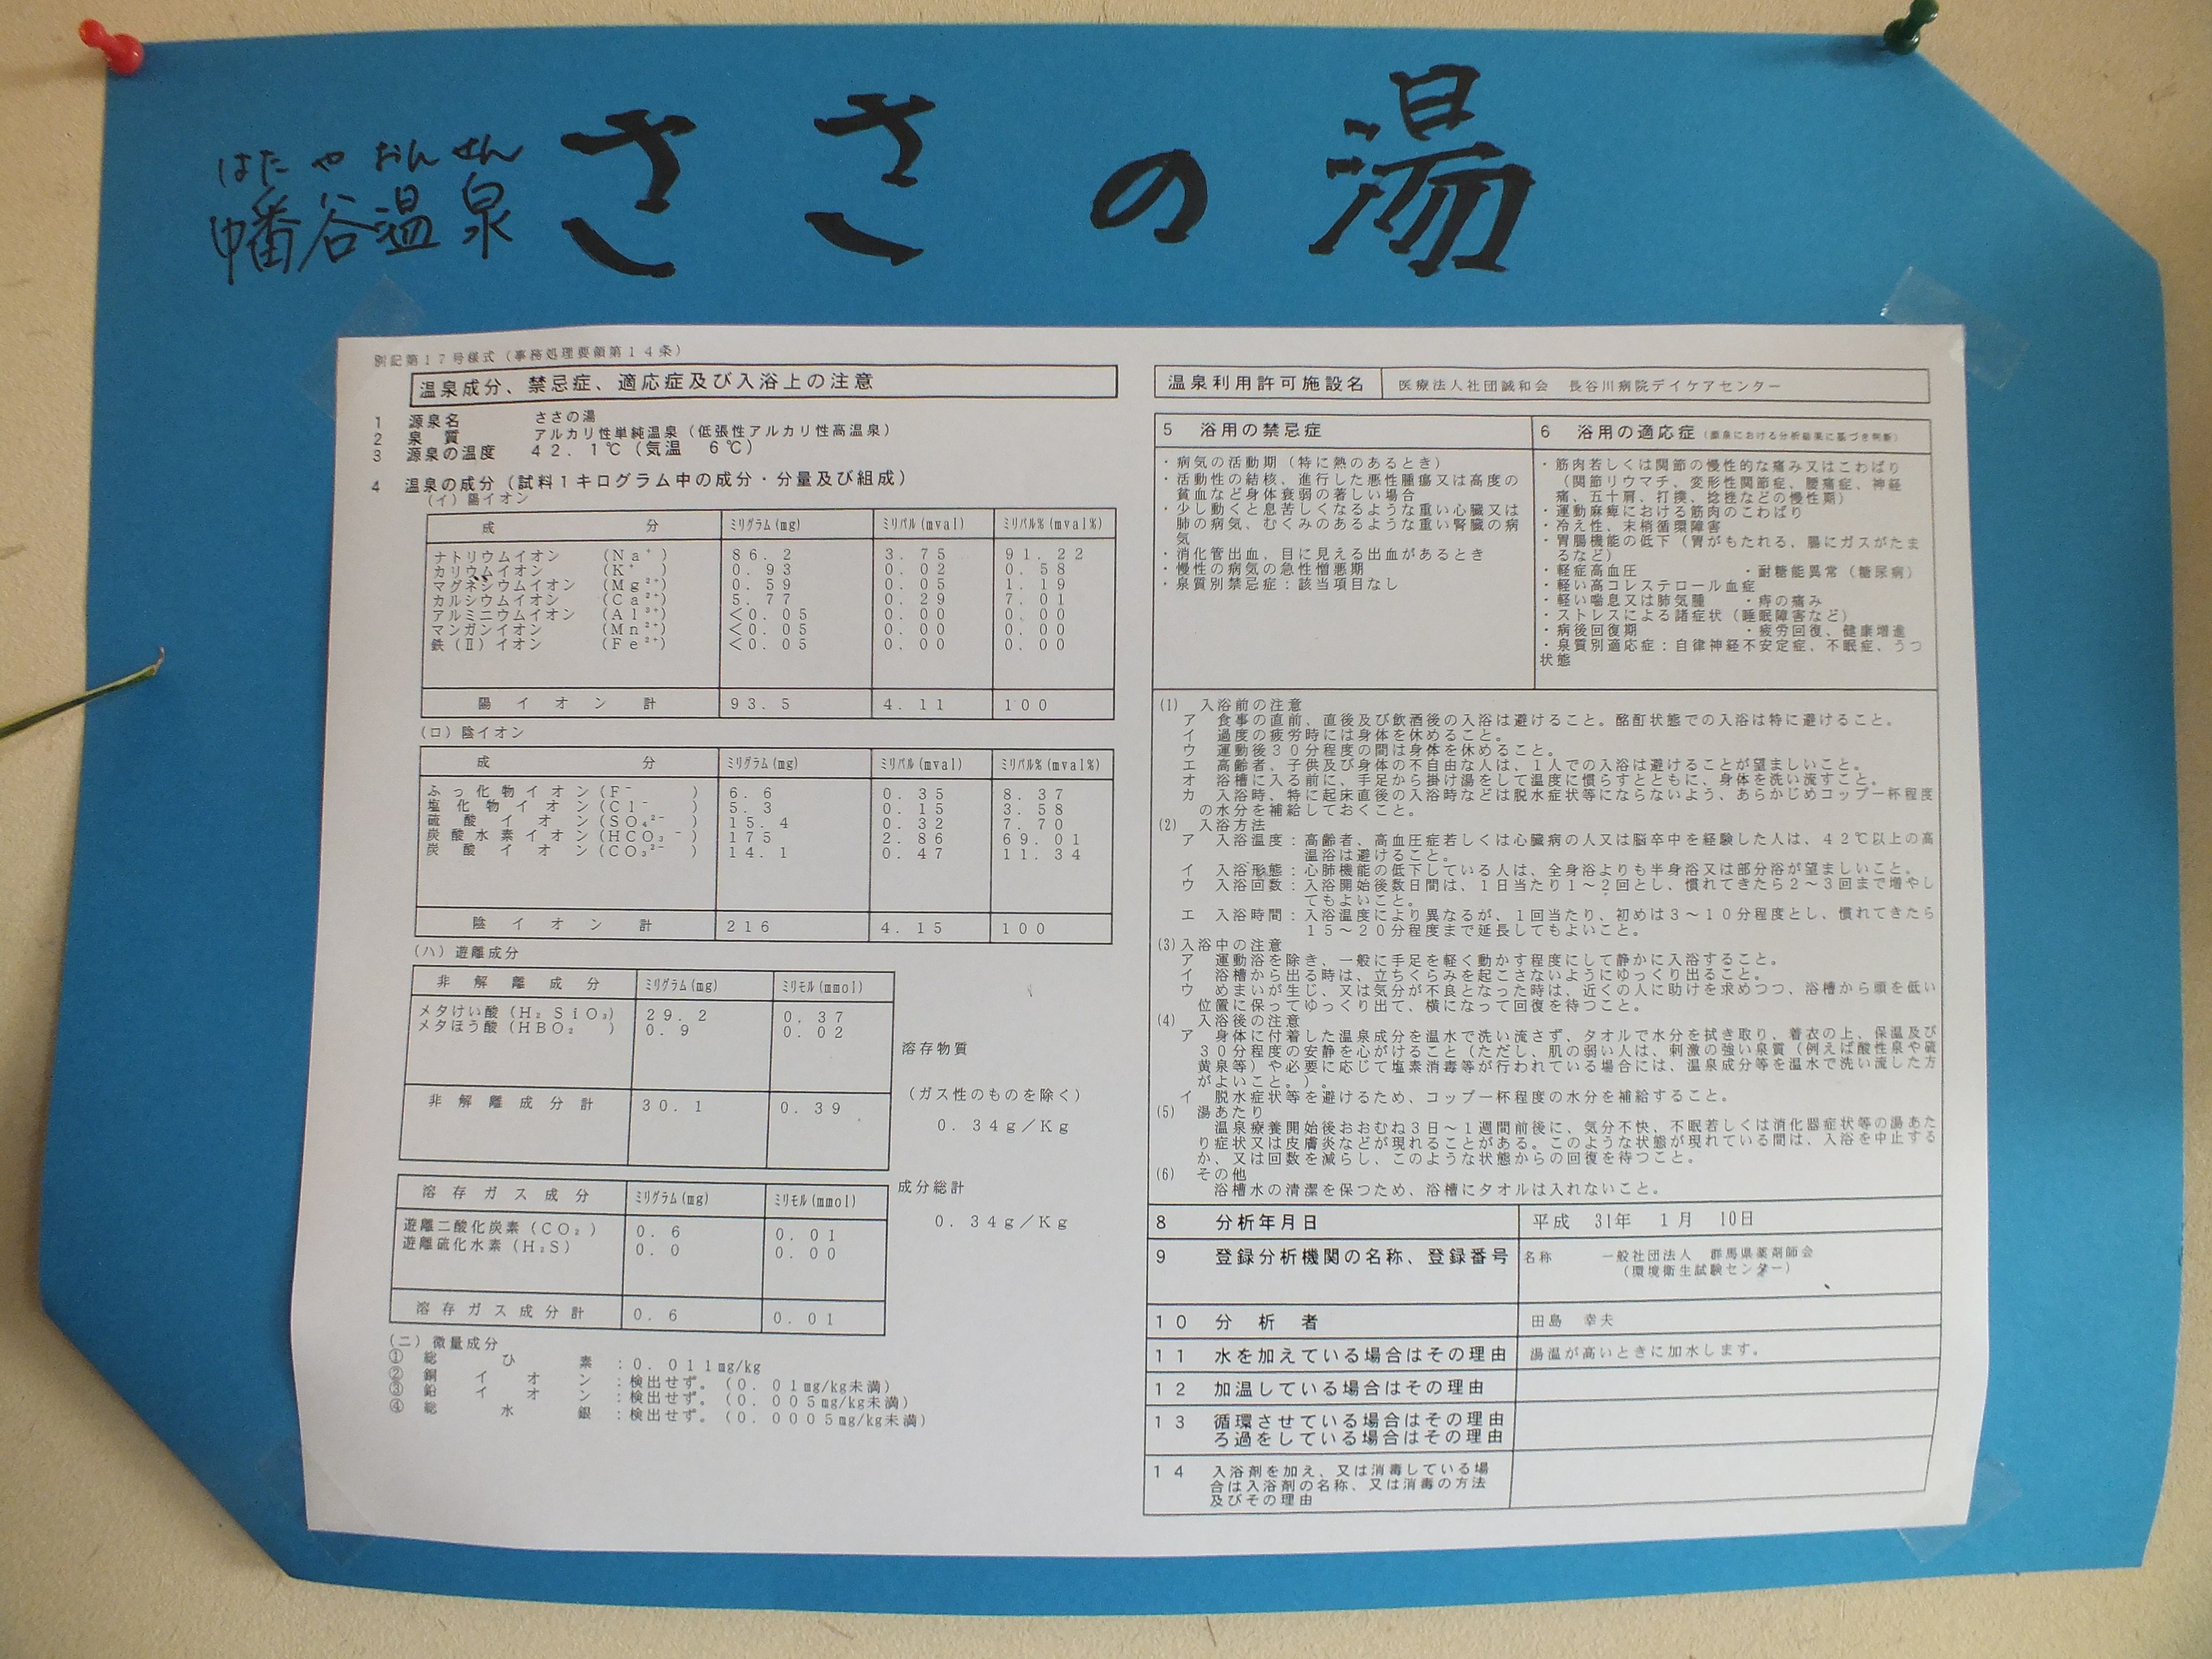 はたやおんせん
幡谷温泉
ささの湯
別記第17号様式（事務処理要領第14条）
温泉成分、禁忌症、適応症及び入浴上の注意
1 源泉名 ささの湯
2 泉質 アルカリ性単純温泉（低張性アルカリ性高温泉）
3 源泉の温度 42．1℃（気温 6℃）
4 温泉の成分（試料1キログラム中の成分・分量及び組成）
（イ）陽イオン
成分 ミリグラム(mg) ミリバル(mval) ミリバル%(mval%)
ナトリウムイオン (Na⁺) 86．2 3．75 91．22
カリウムイオン (K⁺) 0．93 0．02 0．58
マグネシウムイオン (Mg²⁺) 0．59 0．05 1．19
カルシウムイオン (Ca²⁺) 5．77 0．29 7．01
アルミニウムイオン (Al³⁺) <0．05 0．00 0．00
マンガンイオン (Mn²⁺) <0．05 0．00 0．00
鉄（Ⅱ）イオン (Fe²⁺) <0．05 0．00 0．00
陽イオン計 93．5 4．11 100
（ロ）陰イオン
成分 ミリグラム(mg) ミリバル(mval) ミリバル%(mval%)
ふっ化物イオン(F⁻) 6．6 0．35 8．37
塩化物イオン(Cl⁻) 5．3 0．15 3．58
硫酸イオン(SO₄²⁻) 15．4 0．32 7．70
炭酸水素イオン(HCO₃⁻) 175 2．86 69．01
炭酸イオン(CO₃²⁻) 14．1 0．47 11．34
陰イオン計 216 4．15 100
（ハ）遊離成分
非解離成分 ミリグラム(mg) ミリモル(mmol)
メタけい酸（H₂SiO₃） 29．2 0．37
メタほう酸（HBO₂） 0．9 0．02
非解離成分計 30．1 0．39
溶存物質
（ガス性のものを除く）
0．34g／Kg
溶存ガス成分 ミリグラム(mg) ミリモル(mmol)
遊離二酸化炭素（CO₂） 0．6 0．01
遊離硫化水素（H₂S） 0．0 0．00
溶存ガス成分計 0．6 0．01
成分総計
0．34g／Kg
（二）微量成分
① 総ひ素：0．011mg/kg
② 銅イオン：検出せず。（0．01mg/kg未満）
③ 鉛イオン：検出せず。（0．005mg/kg未満）
④ 総水銀：検出せず。（0．0005mg/kg未満）
温泉利用許可施設名 医療法人社団誠和会 長谷川病院デイケアセンター
5 浴用の禁忌症
・病気の活動期（特に熱のあるとき）
・活動性の結核、進行した悪性腫瘍又は高度の
貧血など身体衰弱の著しい場合
・少し動くと息苦しくなるような重い心臓又は
肺の病気、むくみのあるような重い腎臓の病
気
・消化管出血、目に見える出血があるとき
・慢性の病気の急性憎悪期
・泉質別禁忌症：該当項目なし
6 浴用の適応症（源泉における分析結果に基づき判断）
・筋肉若しくは関節の慢性的な痛み又はこわばり
（関節リウマチ、変形性関節症、腰痛症、神経
痛、五十肩、打撲、捻挫などの慢性期）
・運動麻痺における筋肉のこわばり
・冷え性、末梢循環障害
・胃腸機能の低下（胃がもたれる、腸にガスがたま
るなど）
・軽症高血圧 ・耐糖能異常（糖尿病）
・軽い高コレステロール血症
・軽い喘息又は肺気腫 ・痔の痛み
・ストレスによる諸症状（睡眠障害など）
・病後回復期 ・疲労回復、健康増進
・泉質別適応症：自律神経不安定症、不眠症、うつ
状態
(1) 入浴前の注意
ア 食事の直前、直後及び飲酒後の入浴は避けること。酩酊状態での入浴は特に避けること。
イ 過度の疲労時には身体を休めること。
ウ 運動後30分程度の間は身体を休めること。
エ 高齢者、子供及び身体の不自由な人は、1人での入浴は避けることが望ましいこと。
オ 浴槽に入る前に、手足から掛け湯をして温度に慣らすとともに、身体を洗い流すこと。
カ 入浴時、特に起床直後の入浴時などは脱水症状等にならないよう、あらかじめコップ一杯程度
の水分を補給しておくこと。
(2) 入浴方法
ア 入浴温度：高齢者、高血圧症若しくは心臓病の人又は脳卒中を経験した人は、42℃以上の高
温浴は避けること。
イ 入浴形態：心肺機能の低下している人は、全身浴よりも半身浴又は部分浴が望ましいこと。
ウ 入浴回数：入浴開始後数日間は、1日当たり1～2回とし、慣れてきたら2～3回まで増やし
てもよいこと。
エ 入浴時間：入浴温度により異なるが、1回当たり、初めは3～10分程度とし、慣れてきたら
15～20分程度まで延長してもよいこと。
(3)入浴中の注意
ア 運動浴を除き、一般に手足を軽く動かす程度にして静かに入浴すること。
イ 浴槽から出る時は、立ちくらみを起こさないようにゆっくり出ること。
ウ めまいが生じ、又は気分が不良となった時は、近くの人に助けを求めつつ、浴槽から頭を低い
位置に保ってゆっくり出て、横になって回復を待つこと。
(4) 入浴後の注意
ア 身体に付着した温泉成分を温水で洗い流さず、タオルで水分を拭き取り、着衣の上、保温及び
30分程度の安静を心がけること（ただし、肌の弱い人は、刺激の強い泉質（例えば酸性泉や硫
黄泉等）や必要に応じて塩素消毒等が行われている場合には、温泉成分等を温水で洗い流した方
がよいこと。）。
イ 脱水症状等を避けるため、コップ一杯程度の水分を補給すること。
(5) 湯あたり
温泉療養開始後おおむね3日～1週間前後に、気分不快、不眠若しくは消化器症状等の湯あた
り症状又は皮膚炎などが現れることがある。このような状態が現れている間は、入浴を中止する
か、又は回数を減らし、このような状態からの回復を待つこと。
(6) その他
浴槽水の清潔を保つため、浴槽にタオルは入れないこと。
8 分析年月日 平成 31年 1月 10日
9 登録分析機関の名称、登録番号 名称 一般社団法人 群馬県薬剤師会
（環境衛生試験センター）
10 分析者 田島 幸夫
11 水を加えている場合はその理由 湯温が高いときに加水します。
12 加温している場合はその理由
13 循環させている場合はその理由
ろ過をしている場合はその理由
14 入浴剤を加え、又は消毒している場
合は入浴剤の名称、又は消毒の方法
及びその理由